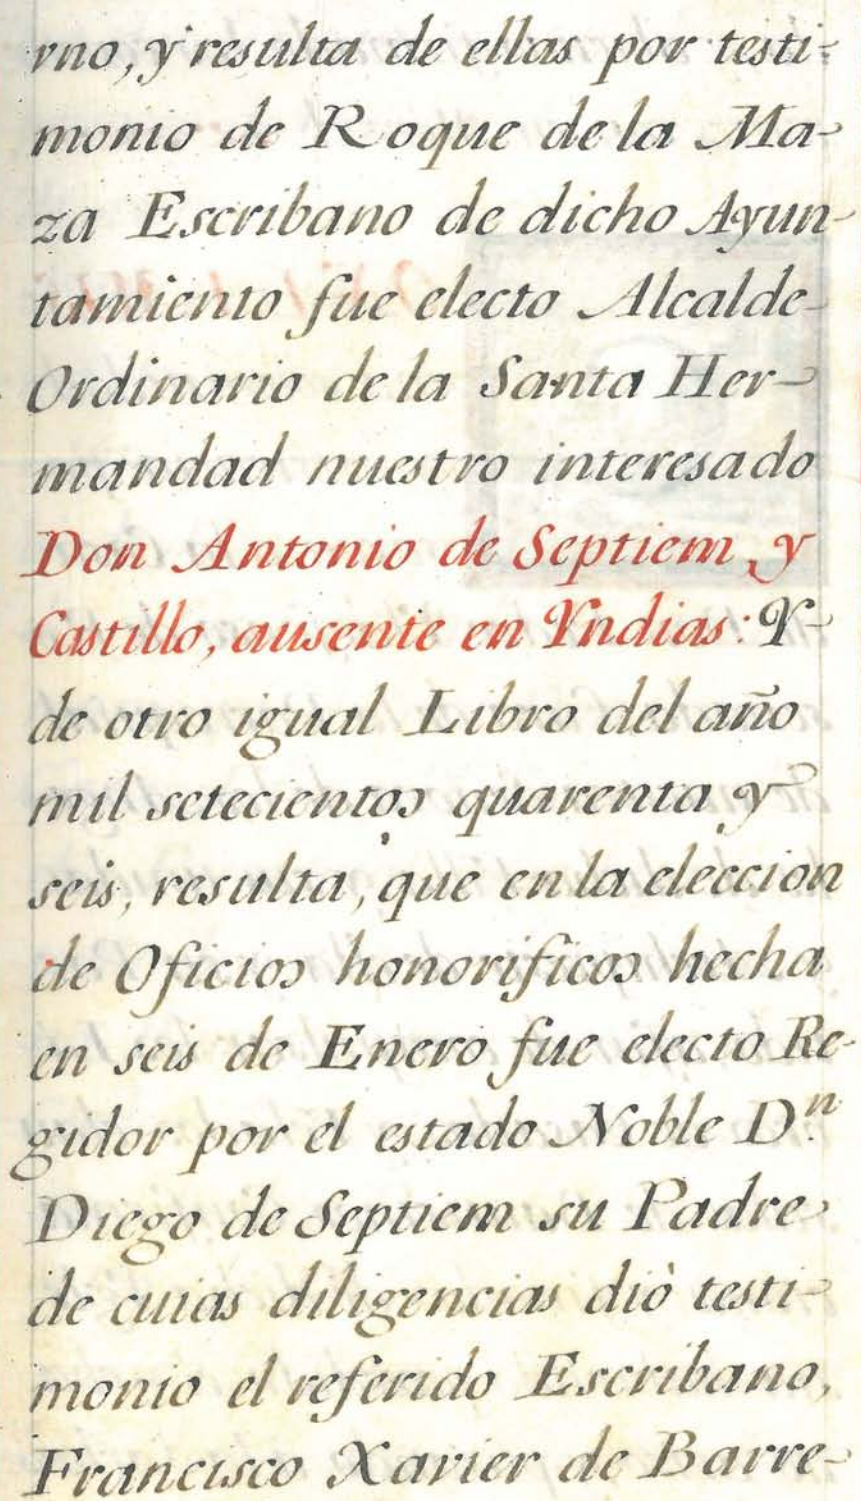 rno, y resulta de ellas por testi-
monio de Roque de la Ma-
za Escribano de dicho Ayun-
tamiento fue electo Alcalde
Ordinario de la Santa Her-
mandad nuestro interesado
Don Antonio de Septiem y
Castillo, ausente en Yndias: Y
de otro igual Libro del año
mil setecientos quarenta y
seis, resulta, que en la eleccion
de Oficios honorificos hecha
en seis de Enero fue electo Re-
gidor por el estado Noble D.ⁿ
Diego de Septiem su Padre
de cuias diligencias diò testi-
monio el referido Escribano,
Francisco Xavier de Barre-